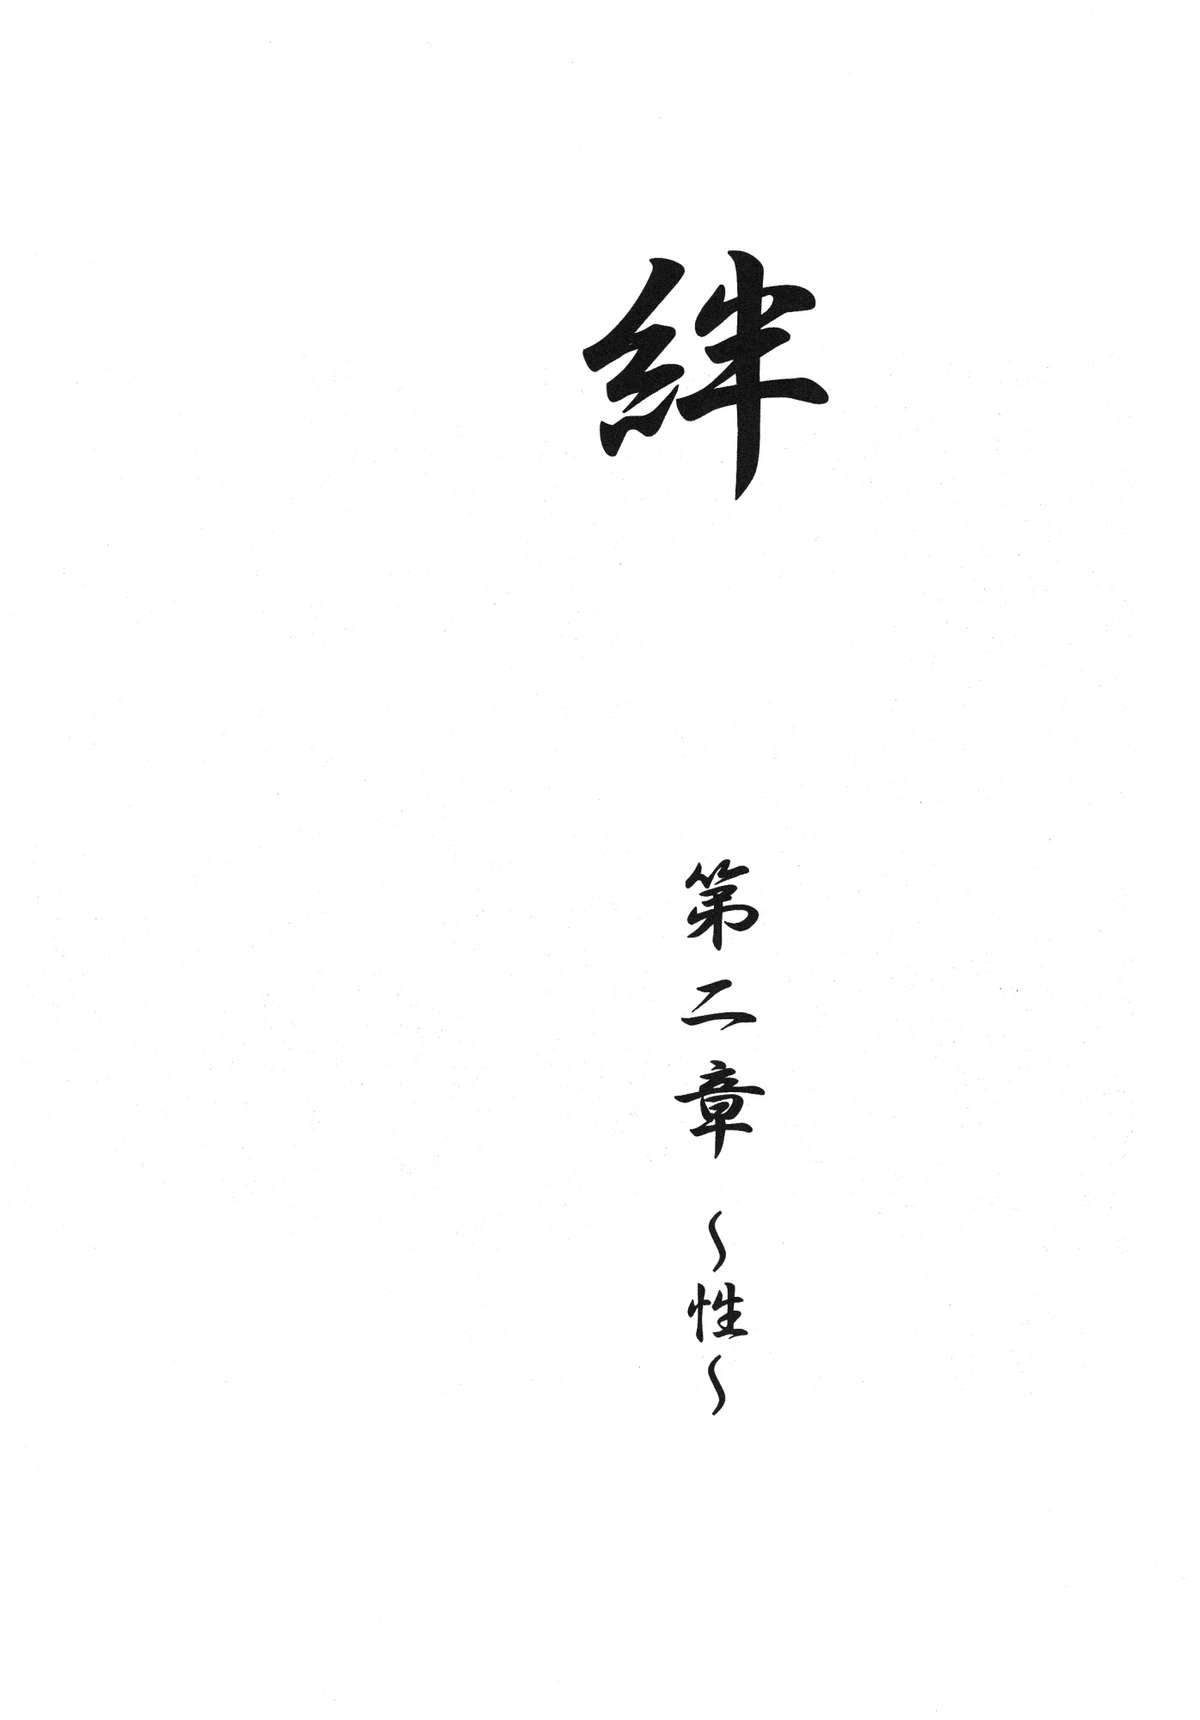 絆
第二章 〜性〜